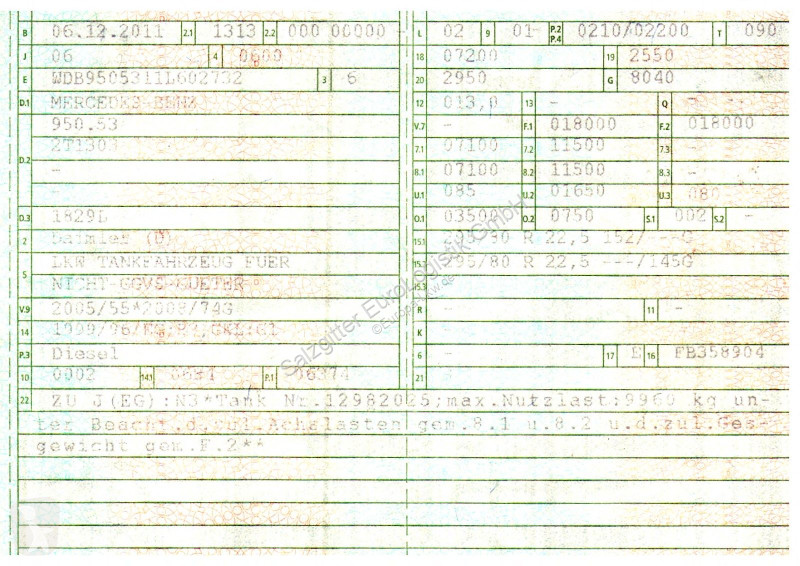 B 06.12.2011 2.1 1313 2.2 000 00000 -
J 06 4 0600
E WDB9505311L602732 3 6
D.1 MERCEDES-BENZ
950.53
D.2 2T1303
-
-
D.3 1829L
2 Daimler (D)
5 LKW TANKFAHRZEUG FUER
NICHT GGVS-GUETER
V.9 2005/55*2008/74G
14
P.3 Diesel
10 0002 14.1 P.1 06374
L 02 9 01- P.2 P.4 0210/02200 T 090
18 07200 19 2550
20 2950 G 8040
12 013,0 13 - Q -
V.7 - F.1 018000 F.2 018000
7.1 07100 7.2 11500 7.3 -
8.1 07100 8.2 11500 8.3 -
U.1 085 U.2 01650 U.3 080
O.1 03500 O.2 0750 S.1 002 S.2 -
15.1 R 22,5 152/---G
15.2 R 22,5 ---/145G
15.3 -
R - 11 -
K -
6 - 17 E 16 FB358904
21 -
22 ZU J(EG):N3*Tank Nr.12982025;max.Nutzlast:9960 kg un-
ter Beacht.d.zul.Achslasten gem.8.1 u.8.2 u.d.zul.Ges-
gewicht gem.F.2**
Salzgitter Eurologistik GmbH